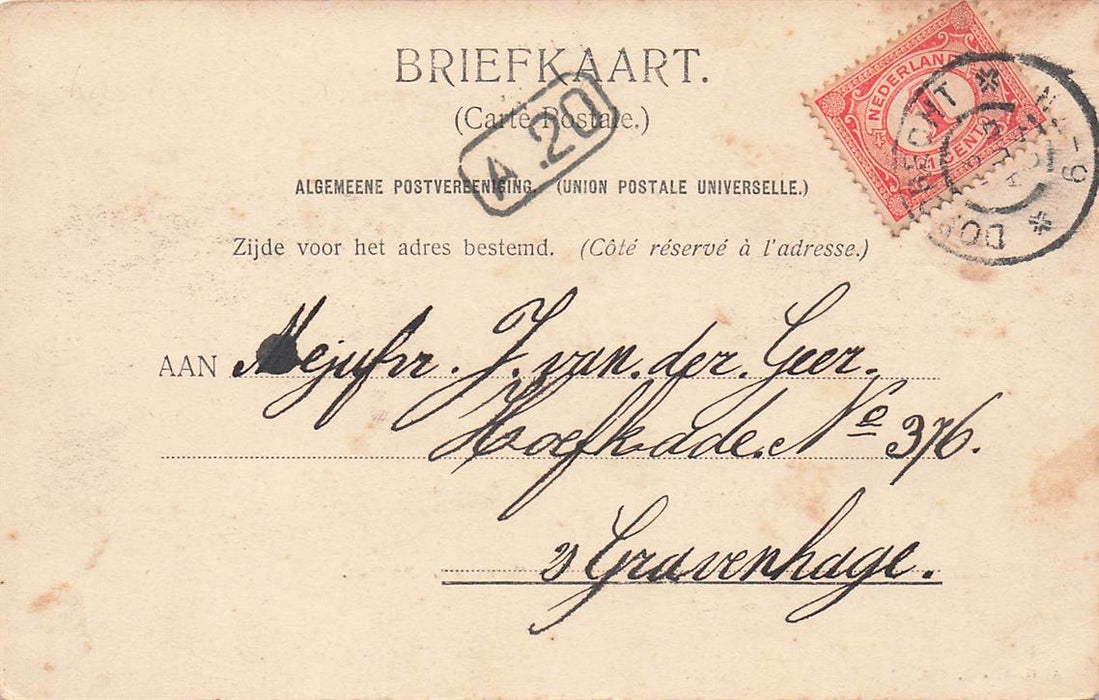 BRIEFKAART.
(Carte Postale.)
A.20
ALGEMEENE POSTVEREENIGING. (UNION POSTALE UNIVERSELLE.)
Zijde voor het adres bestemd. (Côté réservé à l'adresse.)
NEDERLAND
1
CENT
DORDRECHT
AAN Mejufvr. J. van der Geer.
Hoefkade. No 376.
's Gravenhage.